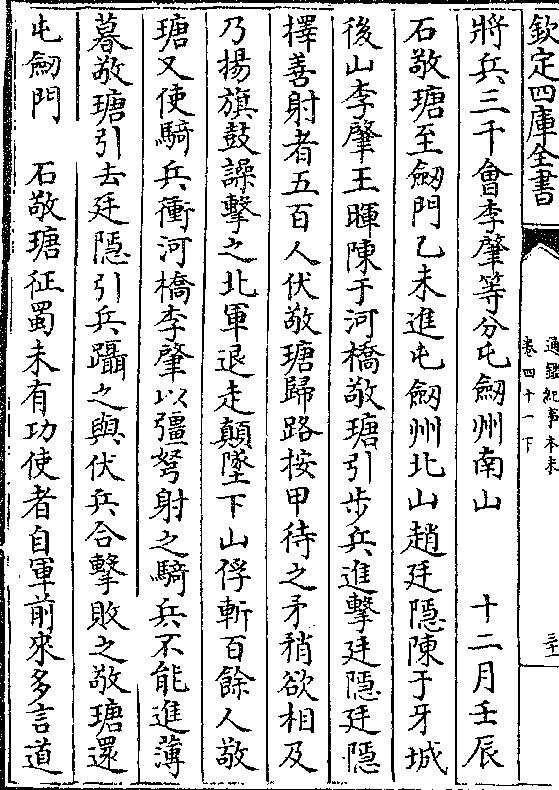 欽定四庫全書
通鑑紀事本末
卷四十一下
三十
將兵三千會李肇等分屯劒州南山　十二月壬辰
石敬瑭至劒門乙未進屯劒州北山趙廷隱陳于牙城
後山李肇王暉陳于河橋敬瑭引步兵進擊廷隱廷隱
擇善射者五百人伏敬瑭歸路按甲待之矛稍欲相及
乃揚旗鼓譟擊之北軍退走顛墜下山俘斬百餘人敬
瑭又使騎兵衝河橋李肇以彊弩射之騎兵不能進薄
暮敬瑭引去廷隱引兵躡之與伏兵合擊敗之敬瑭還
屯劒門　石敬瑭征蜀未有功使者自軍前來多言道